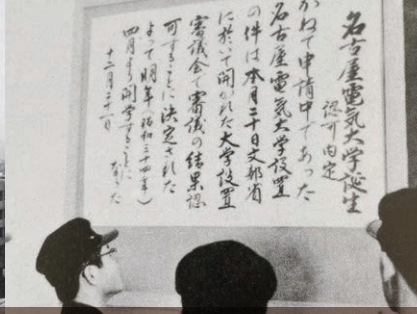 名古屋電気大学誕生
認可内定
かねて申請中であった
名古屋電気大学設置
の件は本月二十日文部省
に於いて開かれた大学設置
審議会で審議の結果認
可することに決定された
よって明年(昭和三十四年)
四月より開学することになった
十二月二十一日